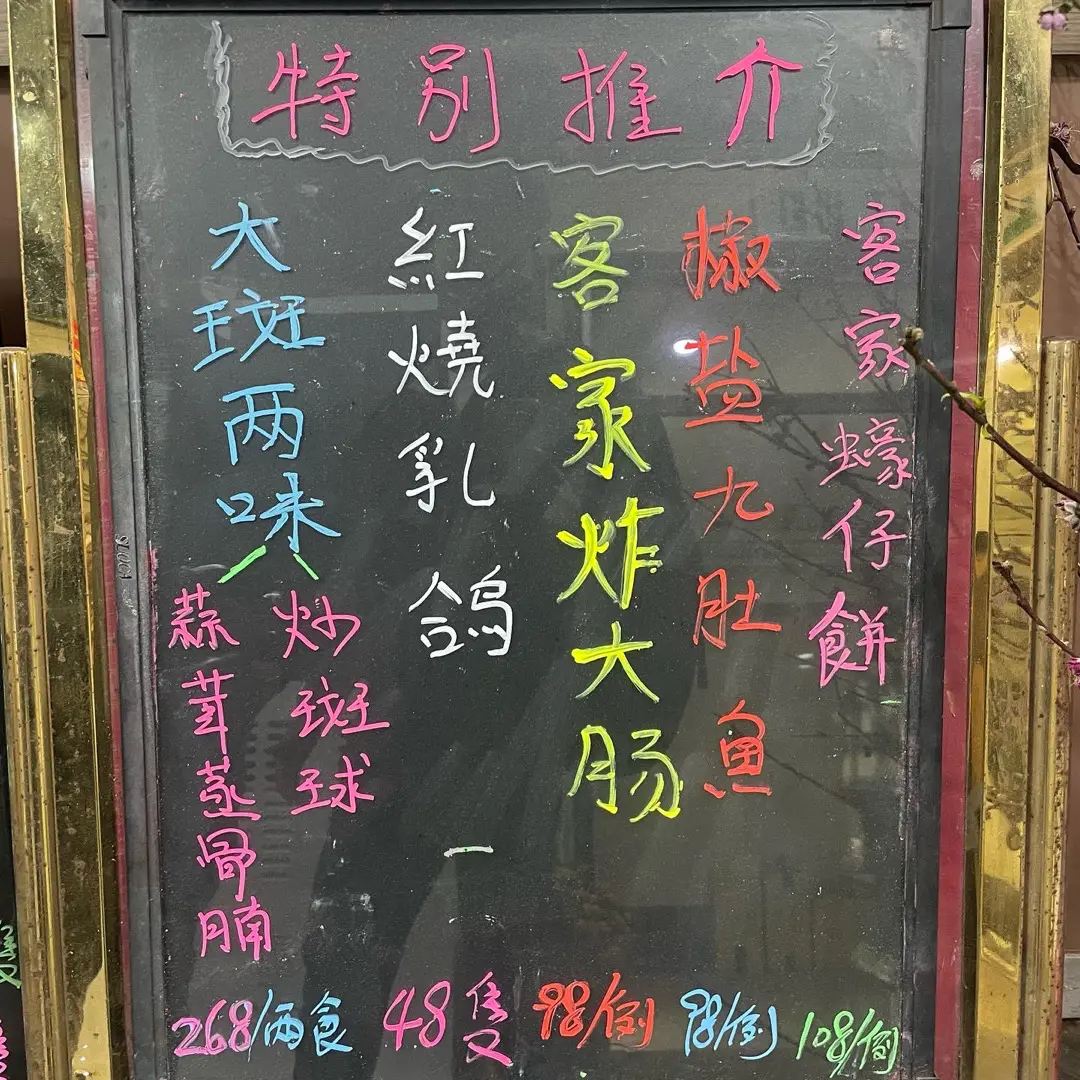 特別推介
客家蠔仔餅
108/例
椒盐九肚魚
98/例
客家炸大肠
98/例
紅燒乳鴿
48隻
大斑两味
炒斑球
蒜茸蒸骨腩
268/兩食